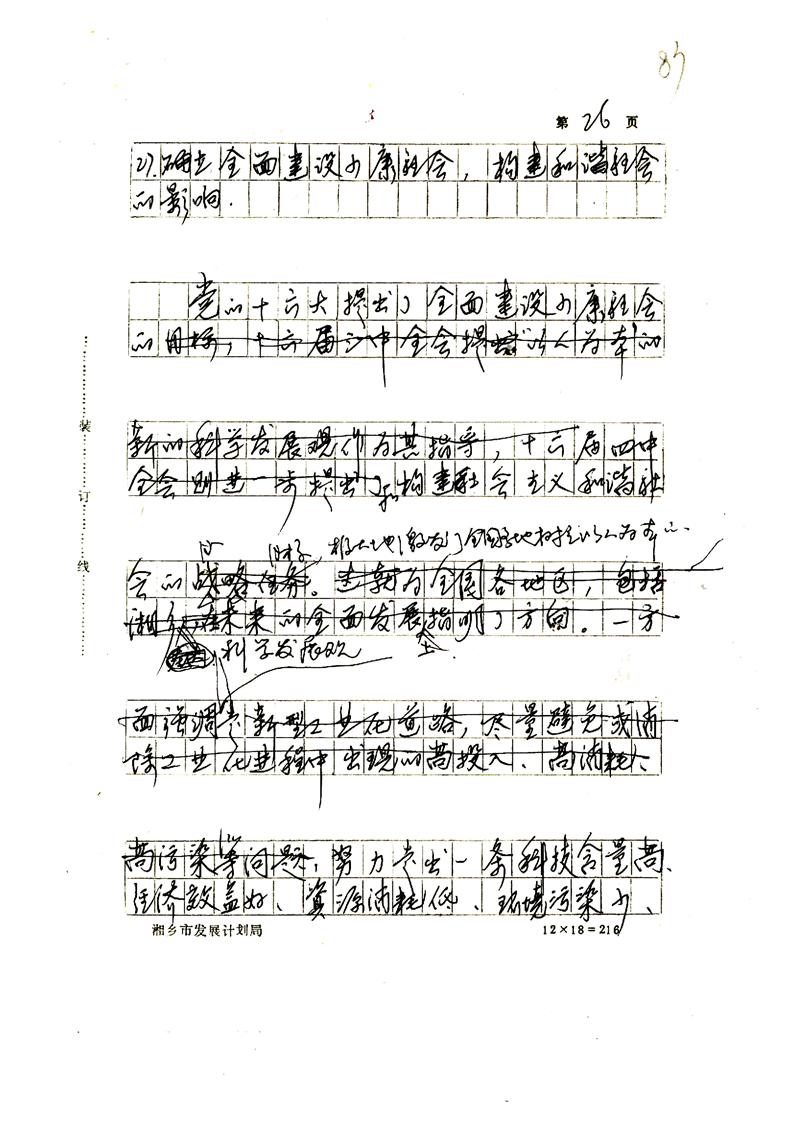 83
第 26 页
2).确立全面建设小康社会，构建和谐社会
的影响.
党的十六大提出了全面建设小康社会
的目标，十六届三中全会提出"以人为本"的
新的科学发展观作为其指导，十六届四中
全会则进一步提出了构建社会主义和谐社
的 目标，
会的战略任务。这就为全国各地区，包括
湘乡在未来的全面发展指明了方向。一方
科学发展观
面强调走新型工业化道路，尽量避免或消
除工业化进程中出现的高投入、高消耗、
高污染等问题，努力走出一条科技含量高、
经济效益好、资源消耗低、环境污染小、
湘乡市发展计划局
12×18=216
装订线